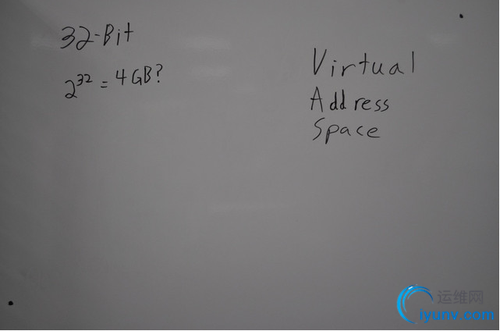 32-Bit
2³² = 4GB?
Virtual
Address
Space
运维网
iyunv.com